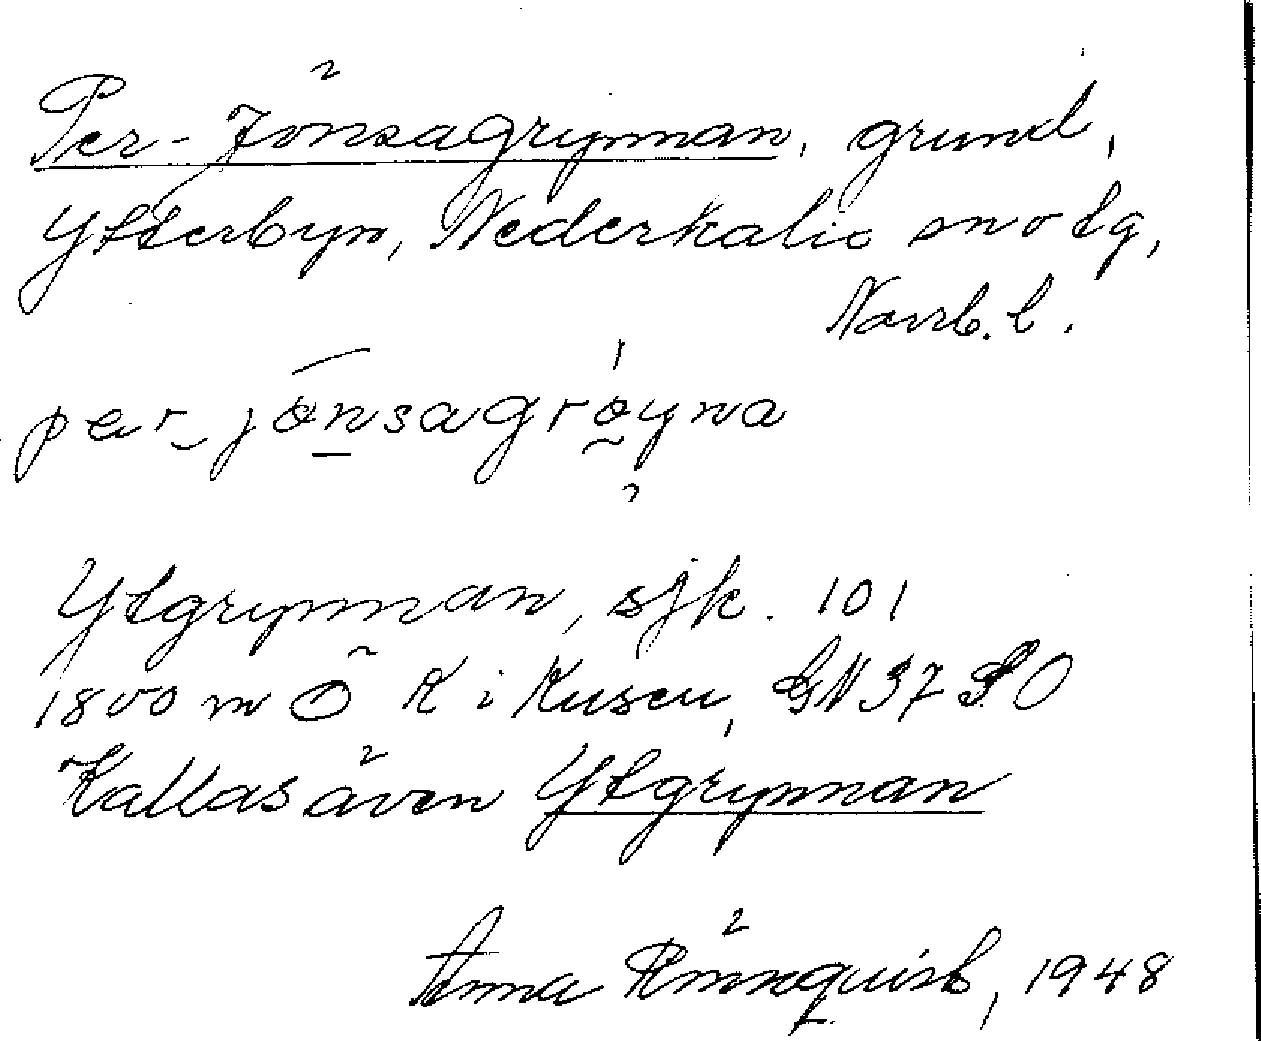 Per-Jönsagrynnan, grund,
Ytterbyn, Nederkalix sn o tg,
Norrb. l.
per jönsagrøyna
Ytgrynnan, sjk. 101
1800 m Ö K i Kusen, GN 37 SO
Kallas även Ytgrynnan
Anna Rönnquist, 1948